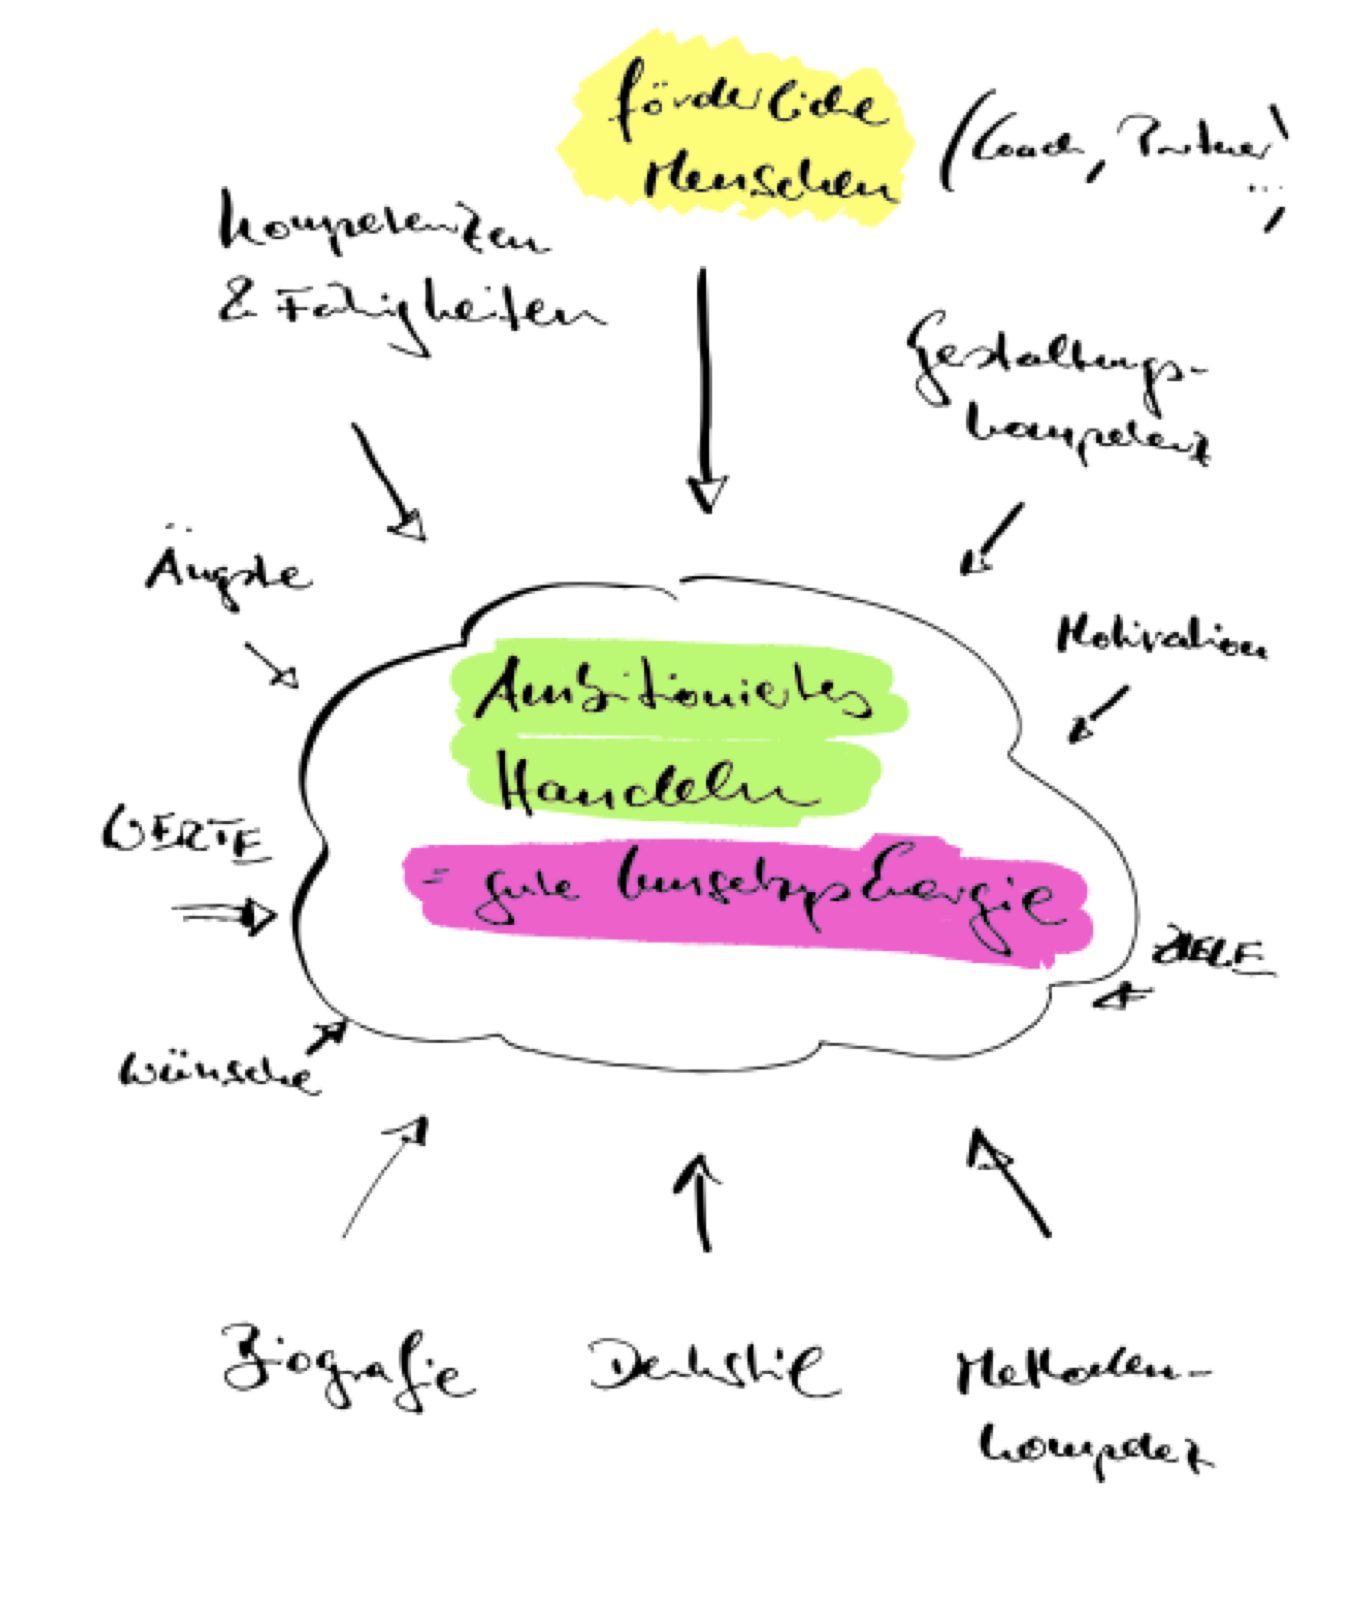 förderliche
Menschen
(Coach, Partner
...)
Kompetenzen
& Fähigkeiten
Gestaltungs-
kompetenz
Ängste
Motivation
Ambitioniertes
Handeln
= gute Umsetzungs Energie
WERTE
ZIELE
Wünsche
Biografie
Denkstil
Methoden-
kompetenz